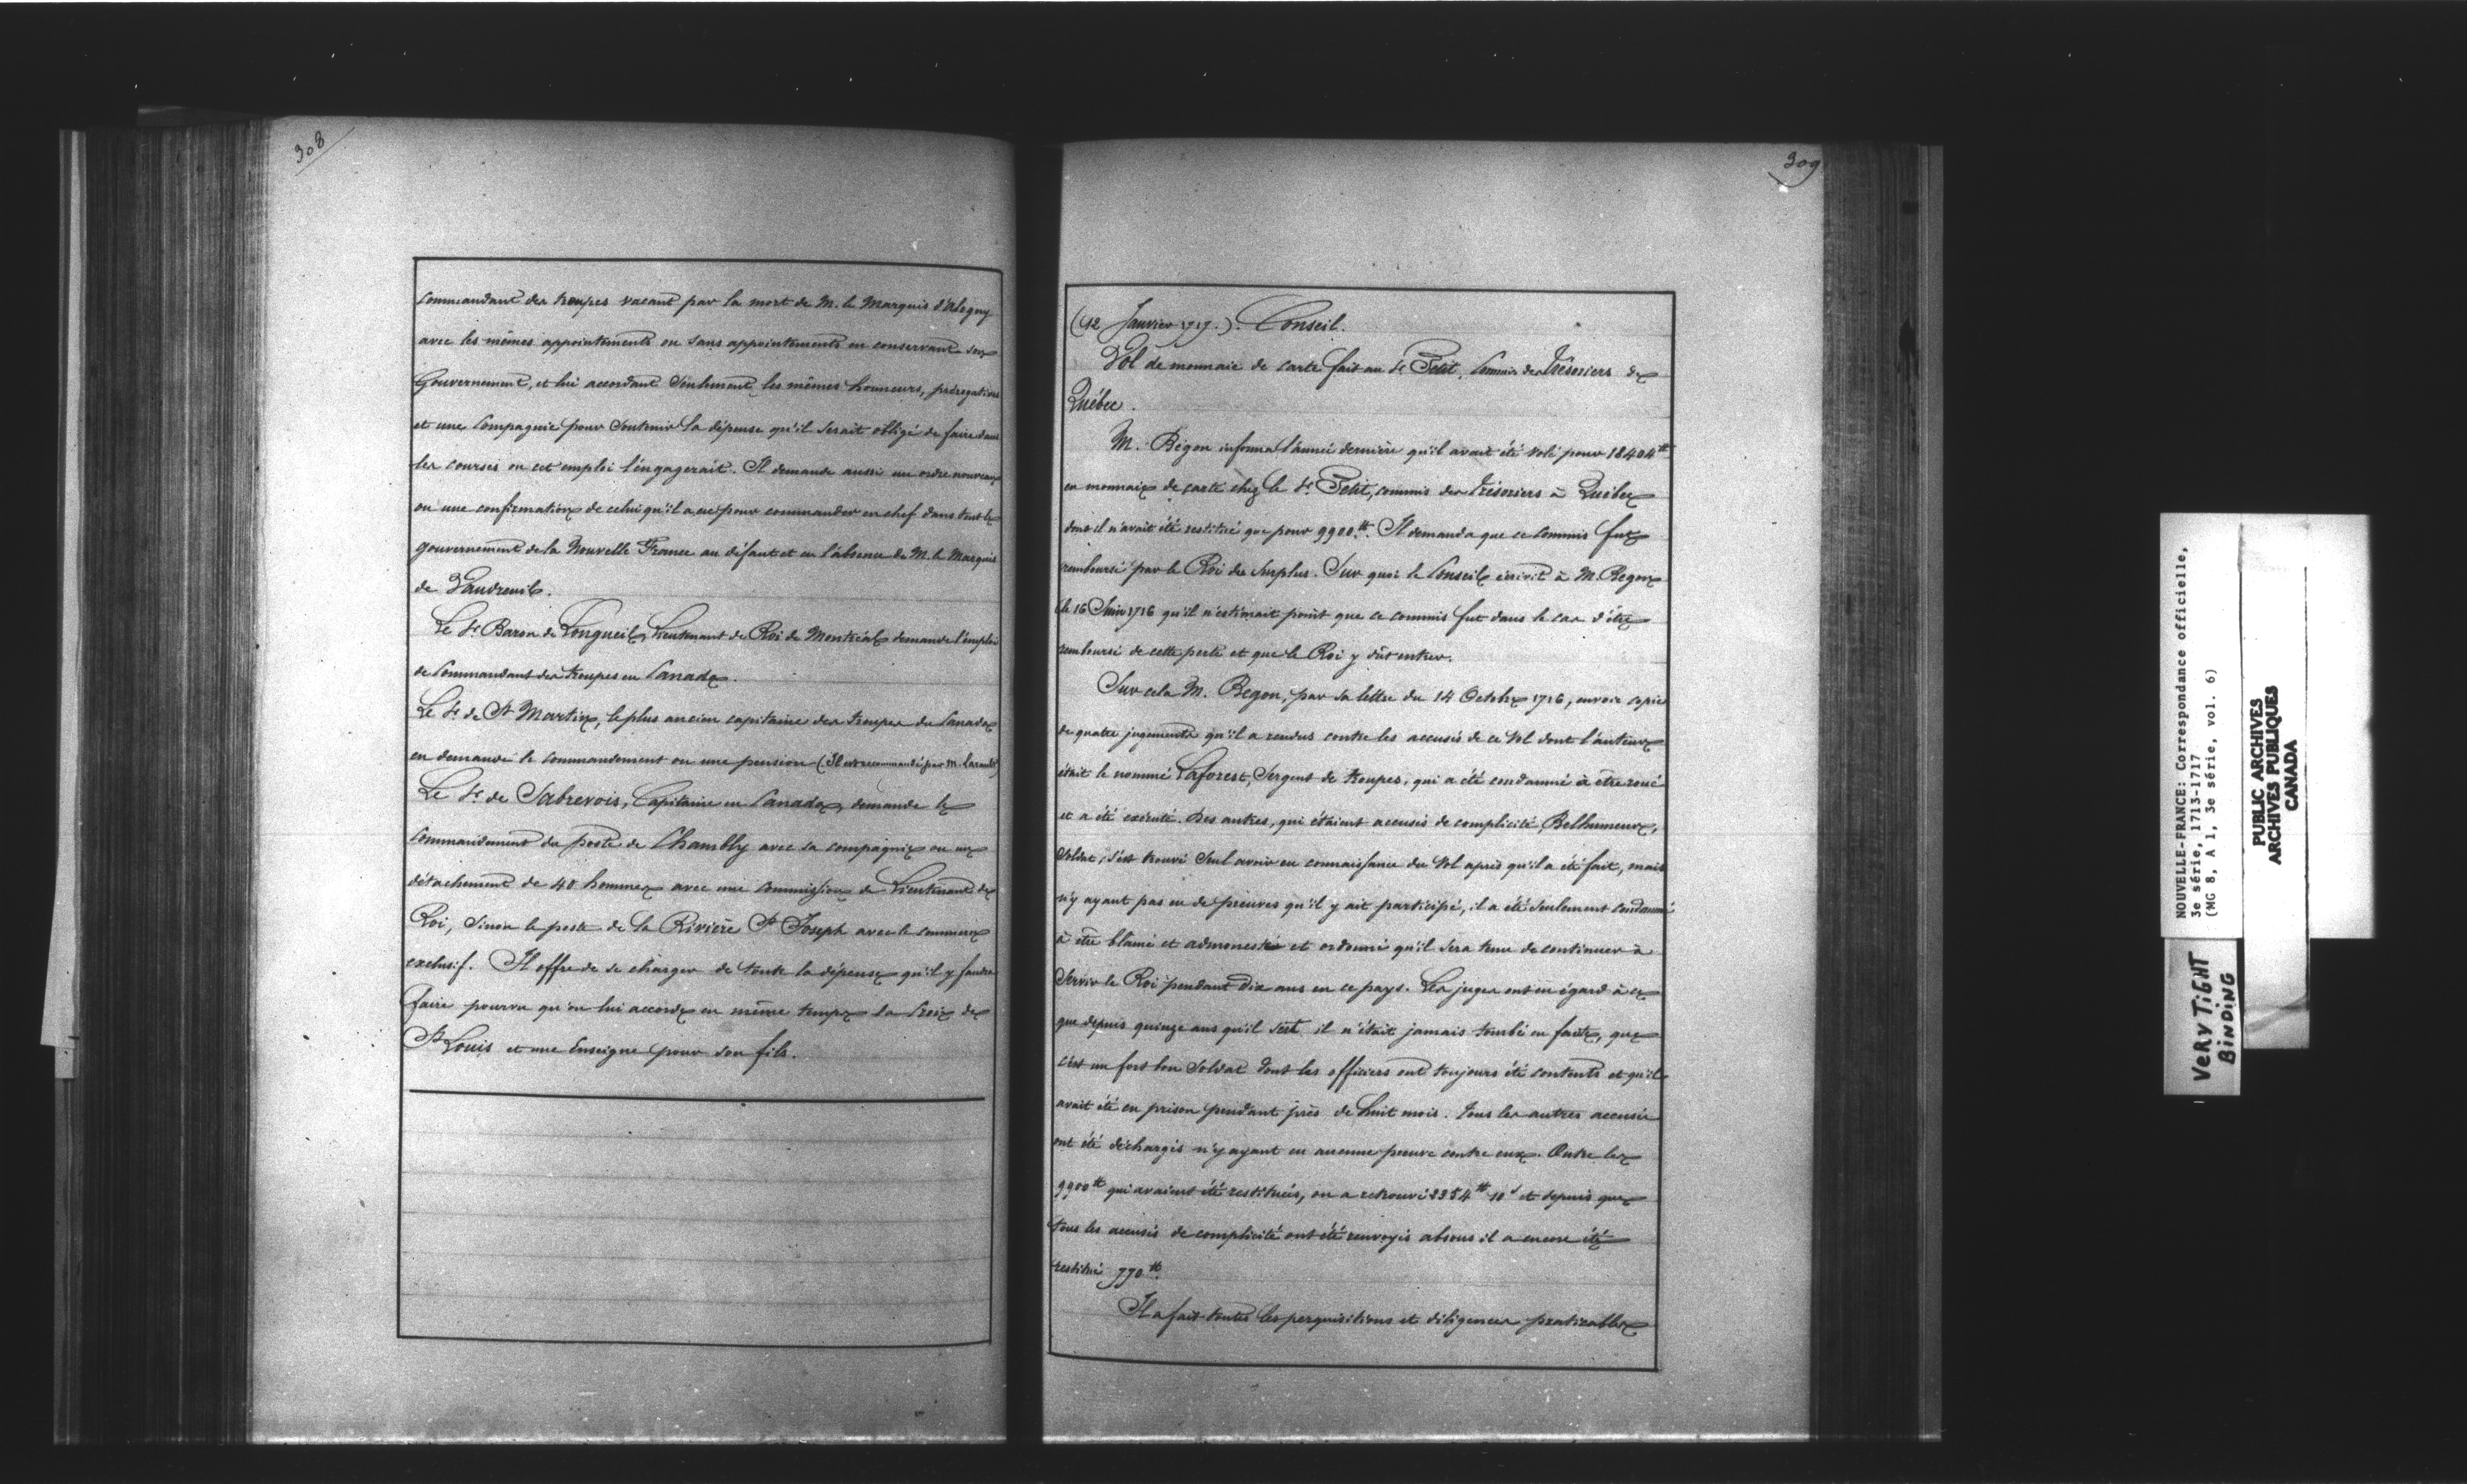 308
Commandant des troupes vacant par la mort de M. le Marquis d'Alogny
avec les mêmes appointements ou sans appointements en conservant son
Gouvernement, et lui accordant seulement les mêmes honneurs, prérogatives
et une Compagnie pour soutenir la dépense qu'il serait obligé de faire dans
les courses ou cet emploi l'engagerait. Il demande aussi un ordre nouveau
ou une confirmation de celui qu'il a eu pour commander en chef dans tout le
gouvernement de la Nouvelle France au défaut et en l'absence de M. le Marquis
de Vaudreuil.
Le Sr. Baron de Longueil, Lieutenant de Roi de Montréal demande l'emploi
de Commandant des troupes en Canada.
Le Sr. de St Martin, le plus ancien capitaine des troupes du Canada
en demande le commandement ou une pension (Il est recommandé par M.
Le Sr. de Sabrevois, Capitaine en Canada, demande le
Commandement du poste de Chambly avec sa compagnie ou un
détachement de 40 hommes avec une Commission de Lieutenant de
Roi, sinon le poste de la Rivière St Joseph avec le commerce
exclusif. Il offre de se charger de toute la dépense qu'il y faudra
faire pourvu qu'on lui accorde en même temps la Croix de
St Louis et une Enseigne pour son fils.
309
(12 Janvier 1717.). Conseil.
Vol de monnaie de carte fait au Sr. Petit, Commis des Trésoriers de
Québec.
M. Bégon informa l'année dernière qu'il avait été volé pour 18404tt
en monnaie de carte chez le Sr. Petit, commis des Trésoriers à Québec
dont il n'avait été restitué que pour 9900tt. Il demanda que ce Commis fut
remboursé par le Roi du surplus. Sur quoi le Conseil écrivit à M. Begon
le 16 Juin 1716 qu'il n'estimait point que ce commis fut dans le cas d'être
remboursé de cette perte et que le Roi y dût entrer.
Sur cela M. Begon, par sa lettre du 14 Octobre 1716, envoie copie
de quatre jugements qu'il a rendus contre les accusés de ce vol dont l'auteur
était le nommé Laforest, Sergent de troupes, qui a été condamné à être roué
et a été exécuté. Des autres, qui étaient accusés de complicité, Belhumeur,
Soldat, s'est trouvé seul avoir eu connaissance du vol après qu'il a été fait, mais
n'y ayant pas eu de preuves qu'il y ait participé, il a été seulement condamné
à être blâmé et admonesté et ordonné qu'il sera tenu de continuer à
servir le Roi pendant dix ans en ce pays. Les juges ont eu égard à ce
que depuis quinze ans qu'il sert il n'était jamais tombé en faute, que
c'est un fort bon soldat dont les officiers ont toujours été contents et qu'il
avait été en prison pendant près de huit mois. Tous les autres accusés
ont été déchargés n'y ayant eu aucune preuve contre eux. Outre les
9900tt qui avaient été restitués, on a retrouvé 2354tt 10s et depuis que
tous les accusés de complicité ont été renvoyés absous il a encore été
restitué 770tt.
Il a fait toutes les perquisitions et diligences praticables
NOUVELLE-FRANCE: Correspondance officielle,
3e série, 1713-1717
(MG 8, A 1, 3e série, vol. 6)
PUBLIC ARCHIVES
ARCHIVES PUBLIQUES
CANADA
VERY TIGHT
BINDING